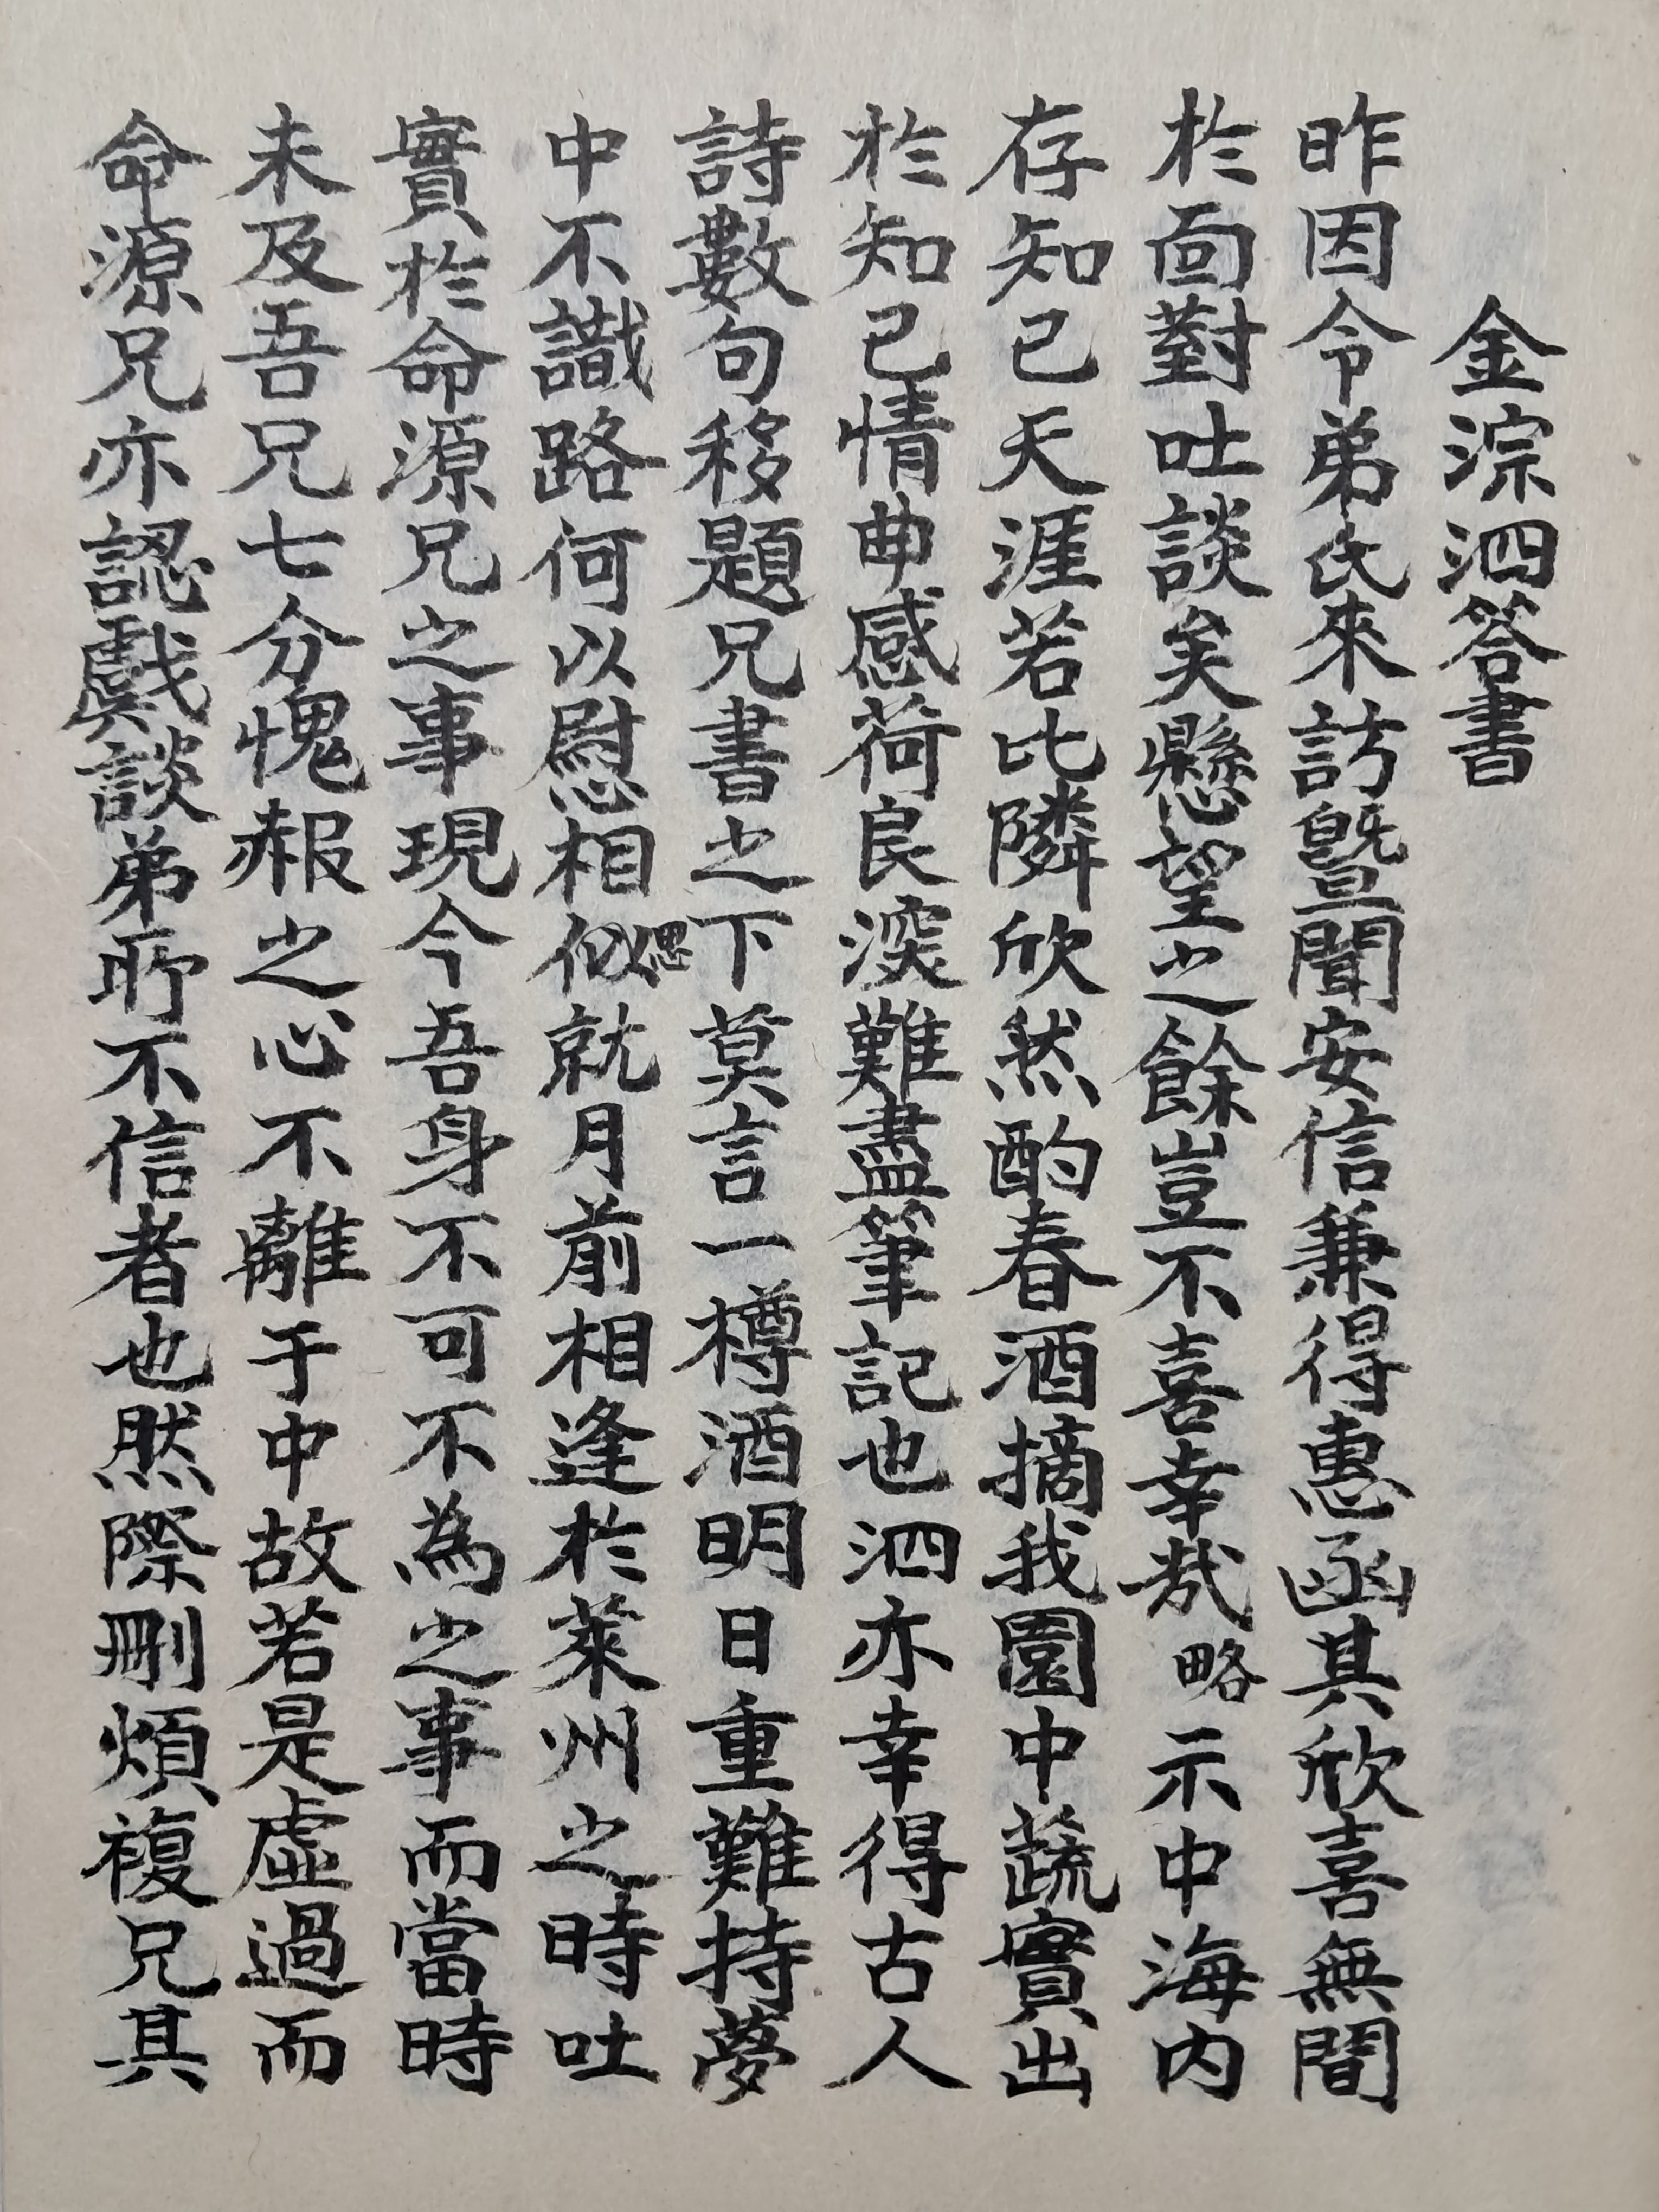 金淙泗答書
昨因令弟氏來訪曁聞安信兼得惠函其欣喜無間
於面對吐談矣懸望之餘豈不喜幸哉略示中海内
存知已天涯若比隣欣然酌春酒摘我園中蔬實出
於知已情曲感荷良深難盡筆記也泗亦幸得古人
詩數句移題兄書之下莫言一樽酒明日重難持夢
中不識路何以慰相思似就月前相逢於萊州之時吐
實於命源兄之事現今吾身不可不為之事而當時
未及吾兄七分愧赧之心不離于中故若是虛過而
命源兄亦認戱談弟所不信者也然際刪煩複兄其